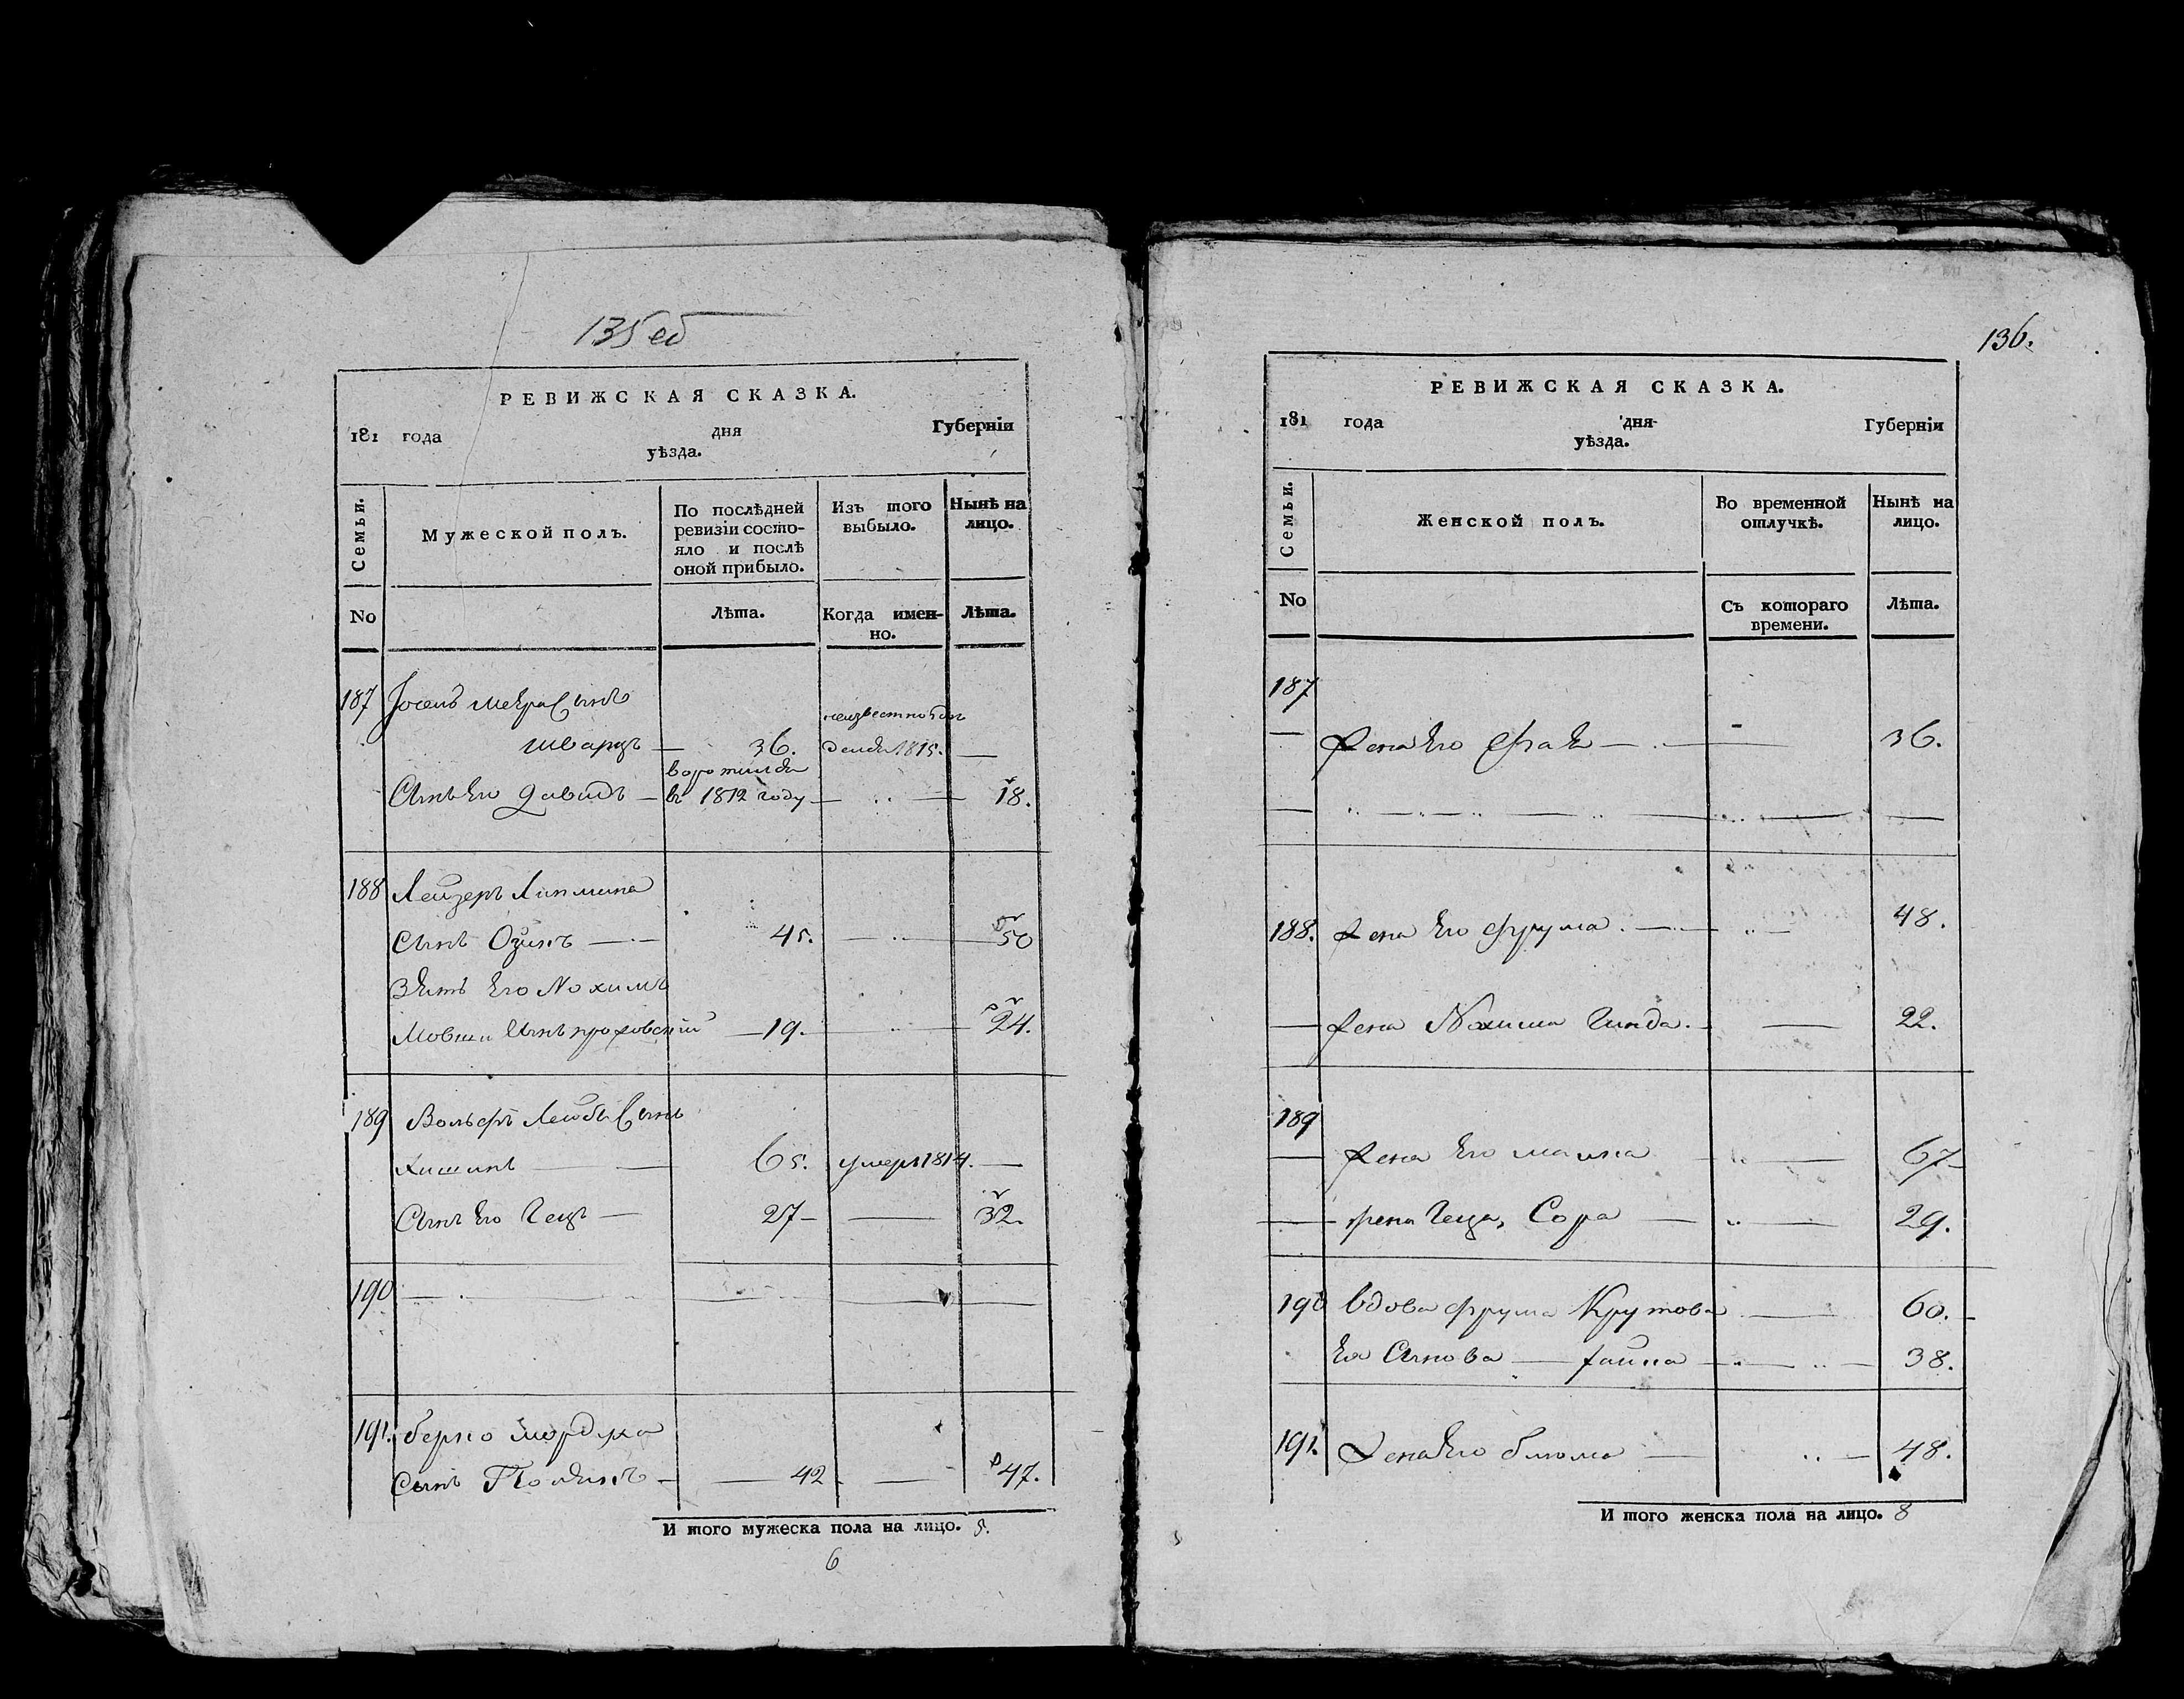 135 об
РЕВИЖСКАЯ СКАЗКА.
181 года дня Губерніи
уѣзда.
Семьи. Мужеской полъ. По послѣдней ревизіи состояло и послѣ оной прибыло. Изъ того выбыло. Нынѣ на лицо.
No Лѣта. Когда именно. Лѣта.
187 Іосель Меера Сынъ
Шварцъ — 36. 1815. —
Сынъ Его Давидъ — въ 1812 году — 18.
188 Лейзеръ Липмана
Сынъ — 45. — 50
Зять Его Нохимъ
Мовши Сынъ — 19. — 24.
189 Вольфъ Лейбы Сынъ
Хишинъ — 65. умеръ 1814. —
Сынъ Его Гецъ — 27 — 32.
190 —
191. Берко Мордуха
Сынъ — 42 — 47.
И того мужеска пола на лицо. 5.
6
136.
РЕВИЖСКАЯ СКАЗКА.
181 года дня Губерніи
уѣзда.
Семьи. Женской полъ. Во временной отлучкѣ. Нынѣ на лицо.
No Съ котораго времени. Лѣта.
187
— Жена Его — 36.
188. Жена Его Фрума. — 48.
— Жена Нохима Гинда. — 22.
189
— Жена Его Малка — 67
— Жена Геца, Сора — 29.
190 Вдова Фрума Крутова — 60.
Ея — Файна — 38.
191. Жена Его Блюма — 48.
И того женска пола на лицо. 8